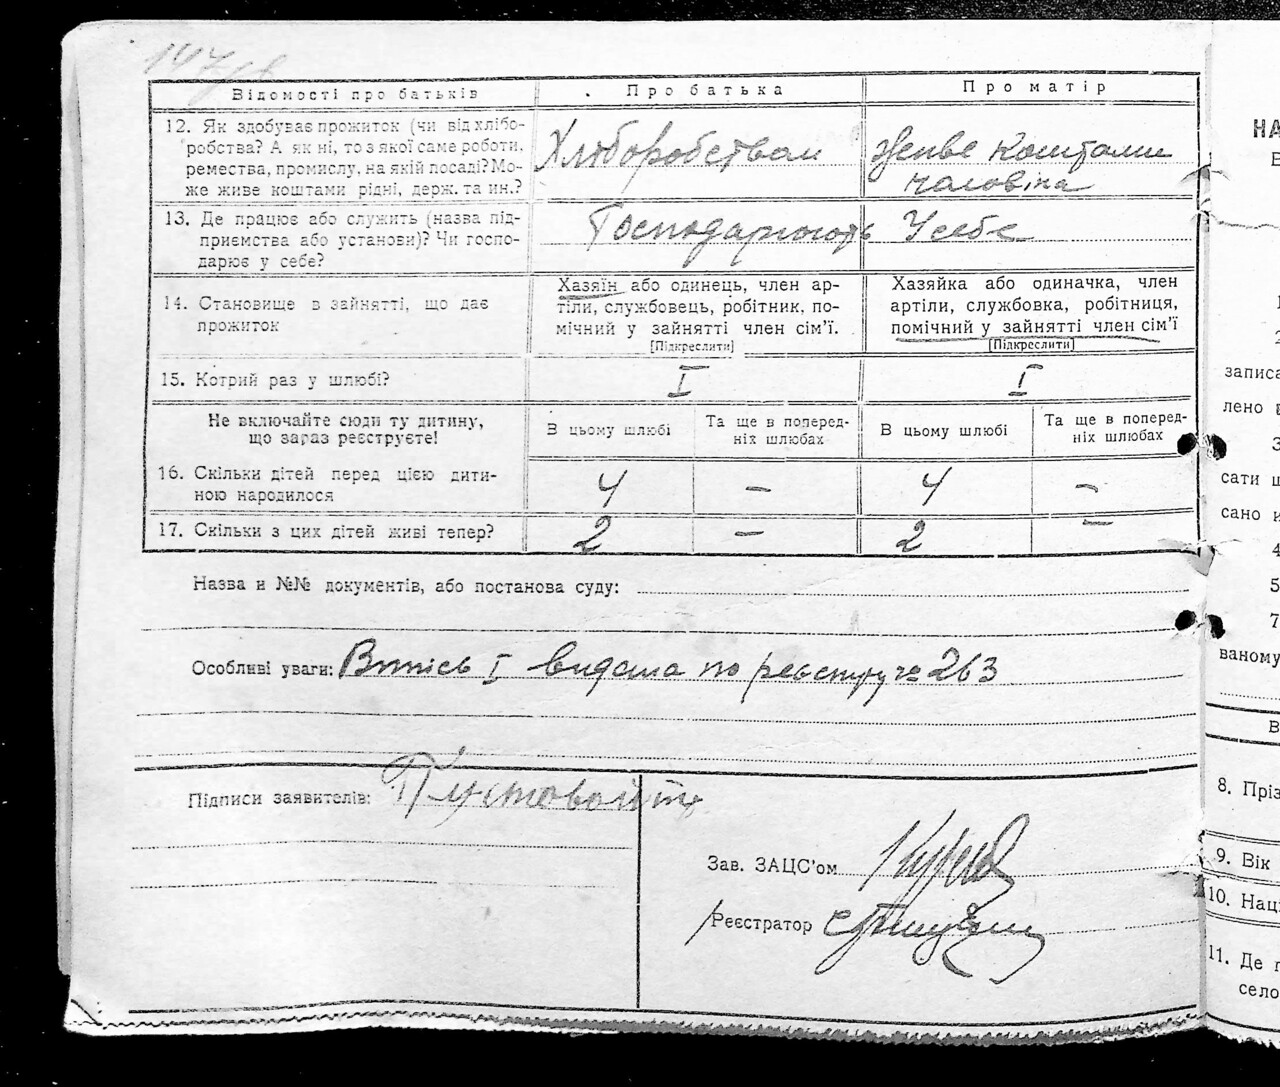 147/8
Відомості про батьків
Про батька
Про матір
12. Як здобуває прожиток (чи від хлібо-
робства? А як ні, то з якої саме роботи,
ремества, промислу, на якій посаді? Мо-
же живе коштами рідні, держ. та ин.?
Хліборобством
живе коштами
чоловіка
13. Де працює або служить (назва під-
приємства або установи)? Чи госпо-
дарює у себе?
Господарюють У себе
14. Становище в зайнятті, що дає
прожиток
Хазяїн або одинець, член ар-
тіли, службовець, робітник, по-
мічний у зайнятті член сім'ї.
[Підкреслити]
Хазяйка або одиначка, член
артіли, службовка, робітниця,
помічний у зайнятті член сім'ї
[Підкреслити]
15. Котрий раз у шлюбі?
I
I
Не включайте сюди ту дитину,
що зараз реєструєте!
В цьому шлюбі
Та ще в поперед-
ніх шлюбах
В цьому шлюбі
Та ще в поперед-
ніх шлюбах
16. Скільки дітей перед цією дити-
ною народилося
4
–
4
–
17. Скільки з цих дітей живі тепер?
2
–
2
–
Назва и №№ документів, або постанова суду:
Особливі уваги: Витпісь I видана по реєстру № 263
Підписи заявителів: Пустовойт
Зав. ЗАЦС'ом
Реєстратор
НА
В
1
2
записа
лено
3
сати
сано
4
5
7
ваному
В
8. Пріз
9. Вік
10. Наці
11. Де
село